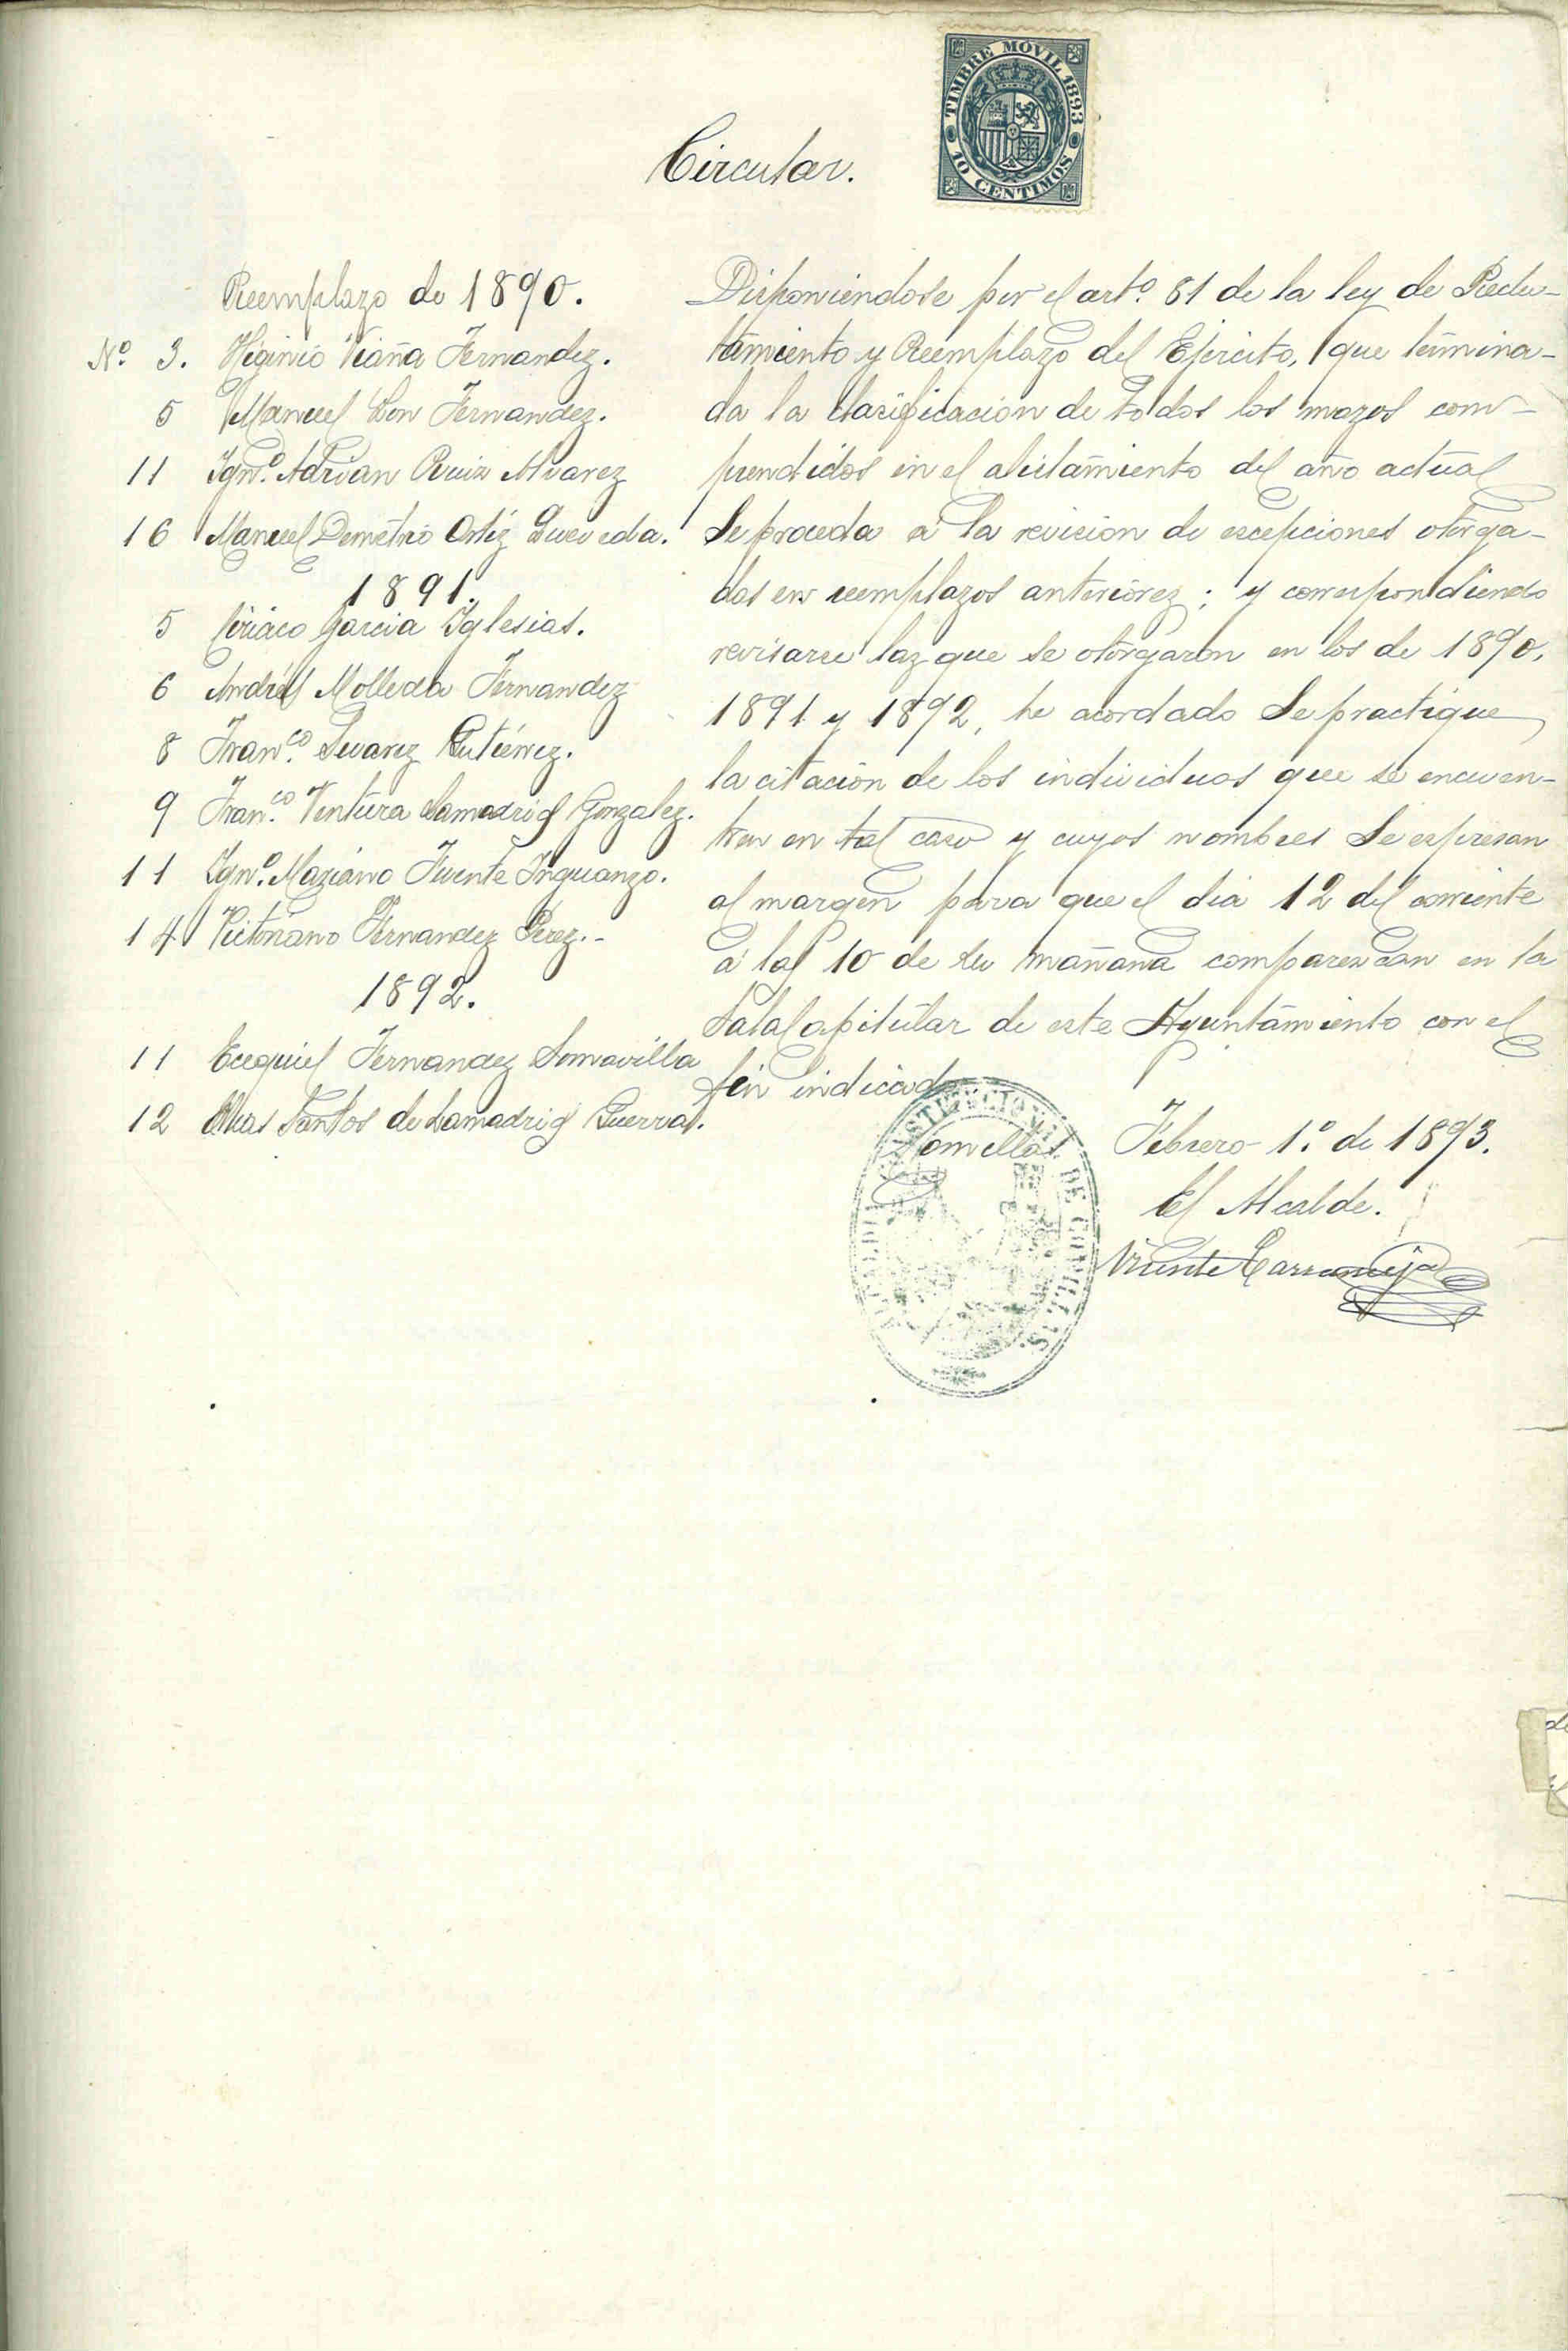 TIMBRE MOVIL 1893
10 CENTIMOS
Circular.
Reemplazo de 1890.
Nº 3. Higinio Viaña Fernandez.
5 Manuel Fernandez.
11 Ign.º Adrian Ruiz Alvarez
16 Manuel Demetrio Ortiz Queveda.
1891.
5 Ciriaco Garcia Iglesias.
6 Andrés Molleda Fernandez
8 Fran.co Suarez Gutierrez.
9 Fran.co Ventura Lamadrid Gonzalez.
11 Ign.º Mariano Fuente Inguanzo.
14 Victoriano Fernandez Perez.-
1892.
11 Ecequiel Fernandez Somavilla
12 Elias Santos de Lamadrid Guerra.
Disponiendose por el artº. 81 de la ley de Reclu-
tamiento y Reemplazo del Ejercito, que termina-
da la clasificacion de todos los mozos com-
prendidos en el alistamiento del año actual
Se proceda á la revision de escepciones otorga-
das en reemplazos anteriorez; y correspondiendo
revisarse laz que se otorgaron en los de 1890,
1891 y 1892, he acordado Se practique
la citacion de los individuos que se encuen-
tren en tal caso y cuyos nombres Se espresan
al margen para que el dia 12 del corriente
á las 10 de su mañana comparezcan en la
Sala Capitular de este Ayuntamiento con el
fin indicado.
Comillas Febrero 1.º de 1893.
El Alcalde.
Vicente Carranceja
CONSTITUCIONAL DE COMILLAS